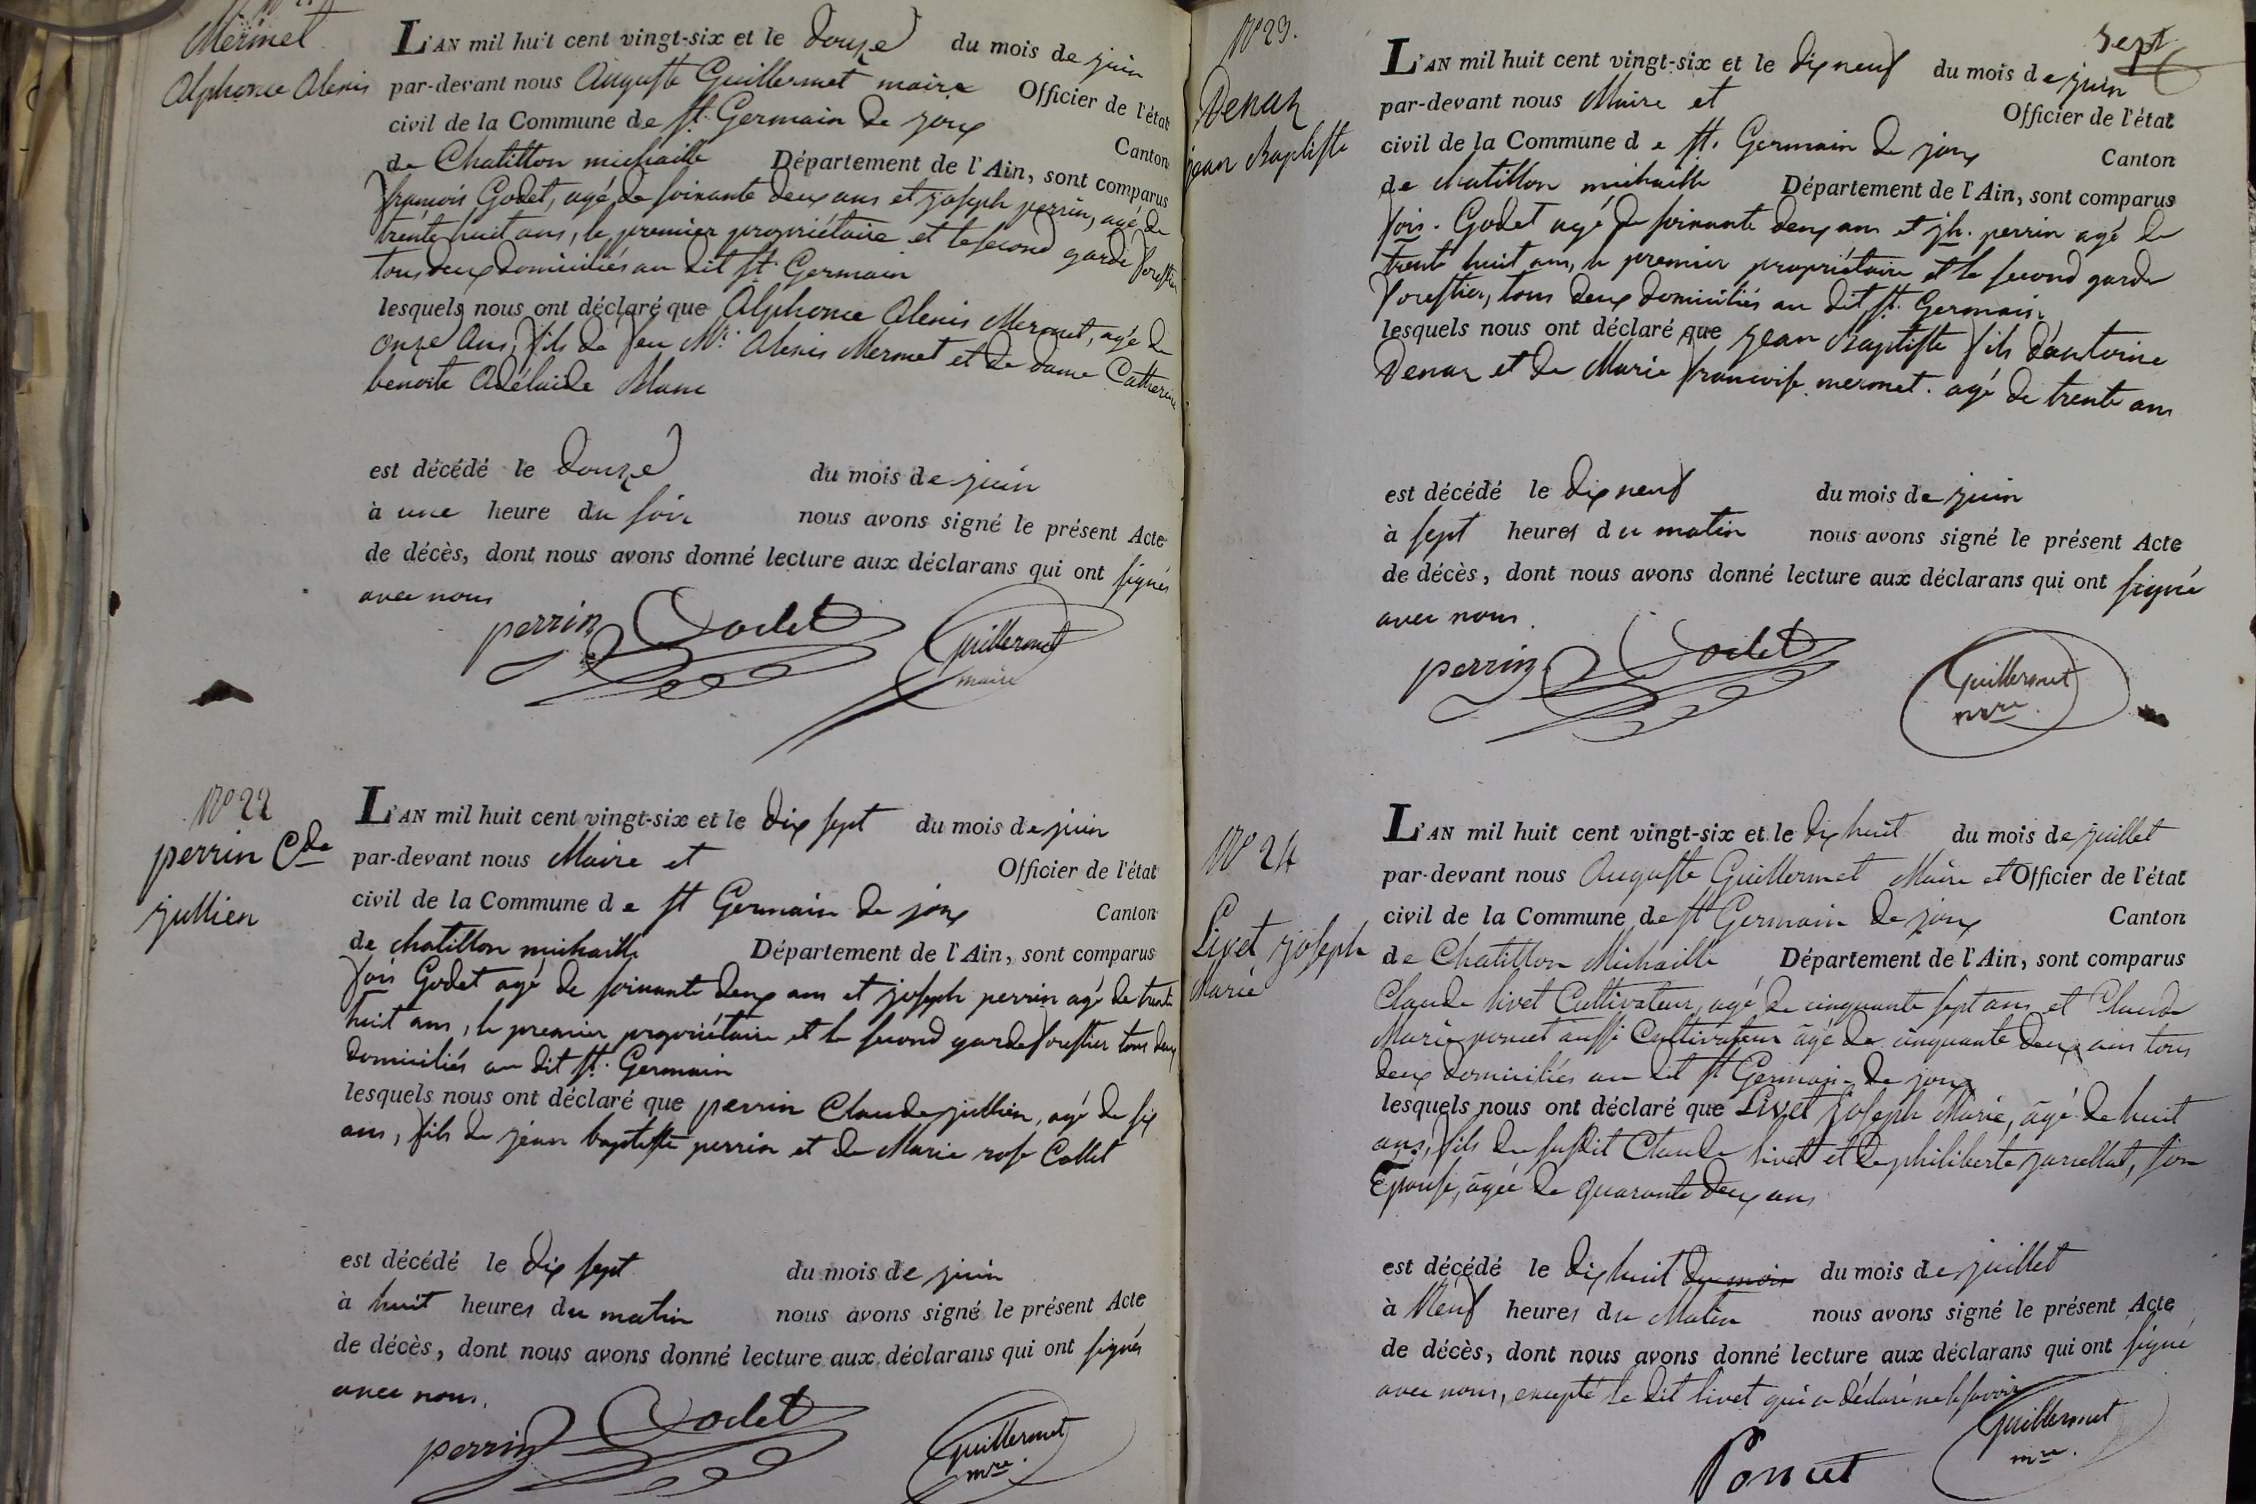 Mermet
Alphonce Alexis
L'AN mil huit cent vingt-six et le douze du mois de juin
par-devant nous Auguste Guillermet maire Officier de l'état
civil de la Commune de St. Germain de joux Canton
de Chatillon michaille Département de l'Ain, sont comparus
françois Godet, agé de soixante deux ans et joseph perrin, agé de
trente huit ans, le premier propriétaire et le second garde forestier
tous deux domiciliés au dit St. Germain
lesquels nous ont déclaré que Alphonce Alexis Mermet, agé de
onze ans, fils de feu Mr. Alexis Mermet et de dame Catherine
benoite Adélaide Blanc
est décédé le douze du mois de juin
à une heure du soir nous avons signé le présent Acte
de décès, dont nous avons donné lecture aux déclarans qui ont signés
avec nous
perrin Godet Guillermet
maire
N° 22
perrin Cde
jullien
L'AN mil huit cent vingt-six et le dix sept du mois de juin
par-devant nous Maire et Officier de l'état
civil de la Commune de St Germain de joux Canton
de chatillon michaille Département de l'Ain, sont comparus
fois Godet agé de soixante deux ans et joseph perrin agé de trente
huit ans, le premier propriétaire et le second garde forestier tous deux
domiciliés au dit St. Germain
lesquels nous ont déclaré que perrin Claude jullien, agé de six
ans, fils de jean baptiste perrin et de Marie rose Collet
est décédé le dix sept du mois de juin
à huit heures du matin nous avons signé le présent Acte
de décès, dont nous avons donné lecture aux déclarans qui ont signés
avec nous.
perrin Godet Guillermet
mre.
sept
N° 23.
Venar
jean Baptiste
L'AN mil huit cent vingt-six et le dix neuf du mois de juin
par-devant nous Maire et Officier de l'état
civil de la Commune de St. Germain de joux Canton
de chatillon michaille Département de l'Ain, sont comparus
fois. Godet agé de soixante deux ans et jh. perrin agé de
trente huit ans, le premier propriétaire et le second garde
forestier, tous deux domiciliés au dit St. Germain,
lesquels nous ont déclaré que jean Baptiste fils d'antoine
Venar et de Marie françoise mermet. agé de trente ans
est décédé le dix neuf du mois de juin
à sept heures du matin nous avons signé le présent Acte
de décès, dont nous avons donné lecture aux déclarans qui ont signé
avec nous.
perrin Godet Guillermet
mre.
N° 24
Livet joseph
Marie
L'AN mil huit cent vingt-six et le dix huit du mois de juillet
par-devant nous Auguste Guillermet Maire et Officier de l'état
civil de la Commune de St Germain de joux Canton
de Chatillon Michaille Département de l'Ain, sont comparus
Claude livet Cultivateur, agé de cinquante sept ans et Claude
Marie poncet aussi Cultivateur âgé de cinquante deux ans tous
deux domiciliés au dit St Germain de joux
lesquels nous ont déclaré que Livet Joseph Marie, âgé de huit
ans, fils du susdit Claude livet et de philiberte, son
Epouse, âgée de quarante deux ans
est décédé le dix huit du mois du mois de juillet
à Neuf heures du Matin nous avons signé le présent Acte
de décès, dont nous avons donné lecture aux déclarans qui ont signé
avec nous, excepté le dit livet qui a déclaré ne le savoir
Guillermet
mre.
Poncet